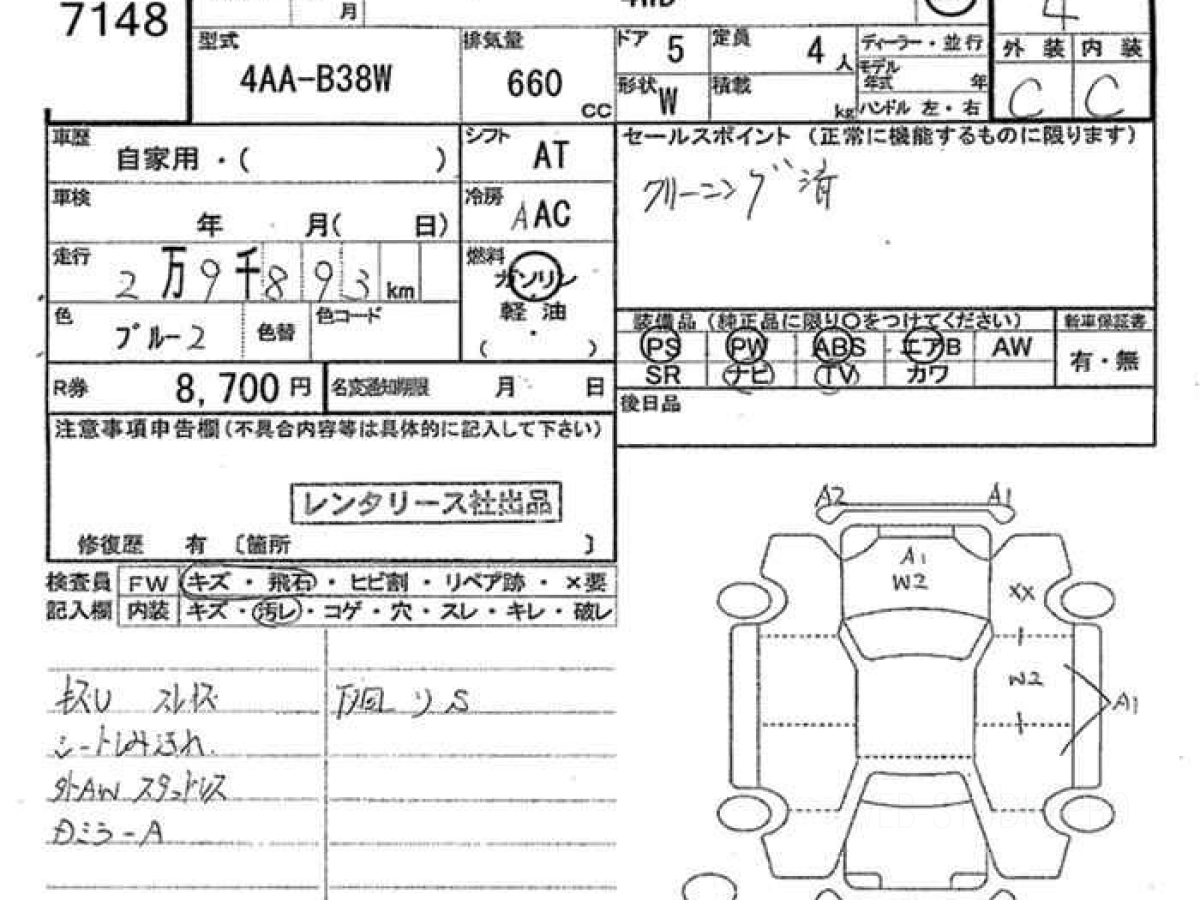 7148
月
型式
4AA-B38W
排気量
660
CC
ドア 5
定員 4 人
形状 W
積載 kg
ディーラー・並行
モデル年式 年
ハンドル 左・右
4
外装 内装
C C
車歴
自家用・( )
シフト
AT
セールスポイント (正常に機能するものに限ります)
クリーニング済
車検
年 月( 日)
冷房
AAC
走行
2万9千893km
燃料
ガソリン
軽油
・
( )
色
ブルー2
色替
色コード
装備品 (純正品に限り○をつけてください)
新車保証書
PS PW ABS エアB AW
SR ナビ TV カワ
有・無
R券
8,700円
名変通知期限 月 日
後日品
注意事項申告欄(不具合内容等は具体的に記入して下さい)
レンタリース社出品
修復歴 有 〔箇所 〕
検査員 FW キズ・飛石・ヒビ割・リペア跡・×要
記入欄 内装 キズ・汚レ・コゲ・穴・スレ・キレ・破レ
キズU スレキズ
下廻りS
シートしみ汚れ.
外AW スタッドレス
ミラーA
A2 A1
A1
W2
XX
W2
A1